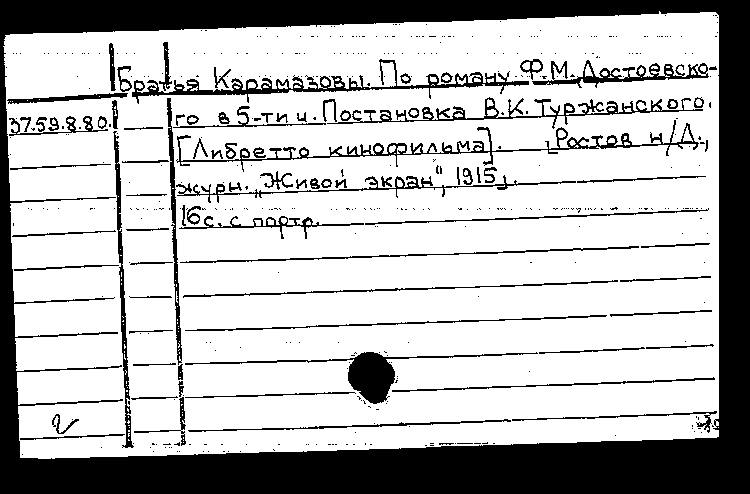 Братья Карамазовы. По роману Ф.М.Достоевско-
37.59.8.80. го в 5-ти ч. Постановка В.К.Туржанского.
[Либретто кинофильма]. [Ростов н/Д.,
журн. „Живой экран", 1915].
16с. с портр.